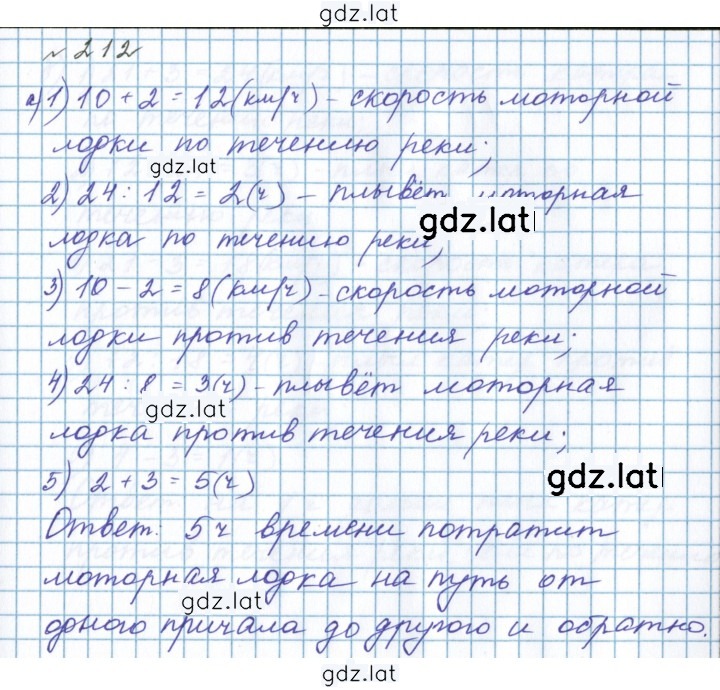 gdz.lat
№ 212
а) 1) 10 + 2 = 12 (км/ч) - скорость моторной
лодки по течению реки;
gdz.lat
2) 24 : 12 = 2 (ч) - плывёт моторная
gdz.lat
лодка по течению реки;
3) 10 - 2 = 8 (км/ч) - скорость моторной
лодки против течения реки;
4) 24 : 8 = 3 (ч) - плывёт моторная
gdz.lat
лодка против течения реки;
5) 2 + 3 = 5 (ч)
gdz.lat
Ответ: 5 ч времени потратит
моторная лодка на путь от
gdz.lat
одного причала до другого и обратно.
gdz.lat